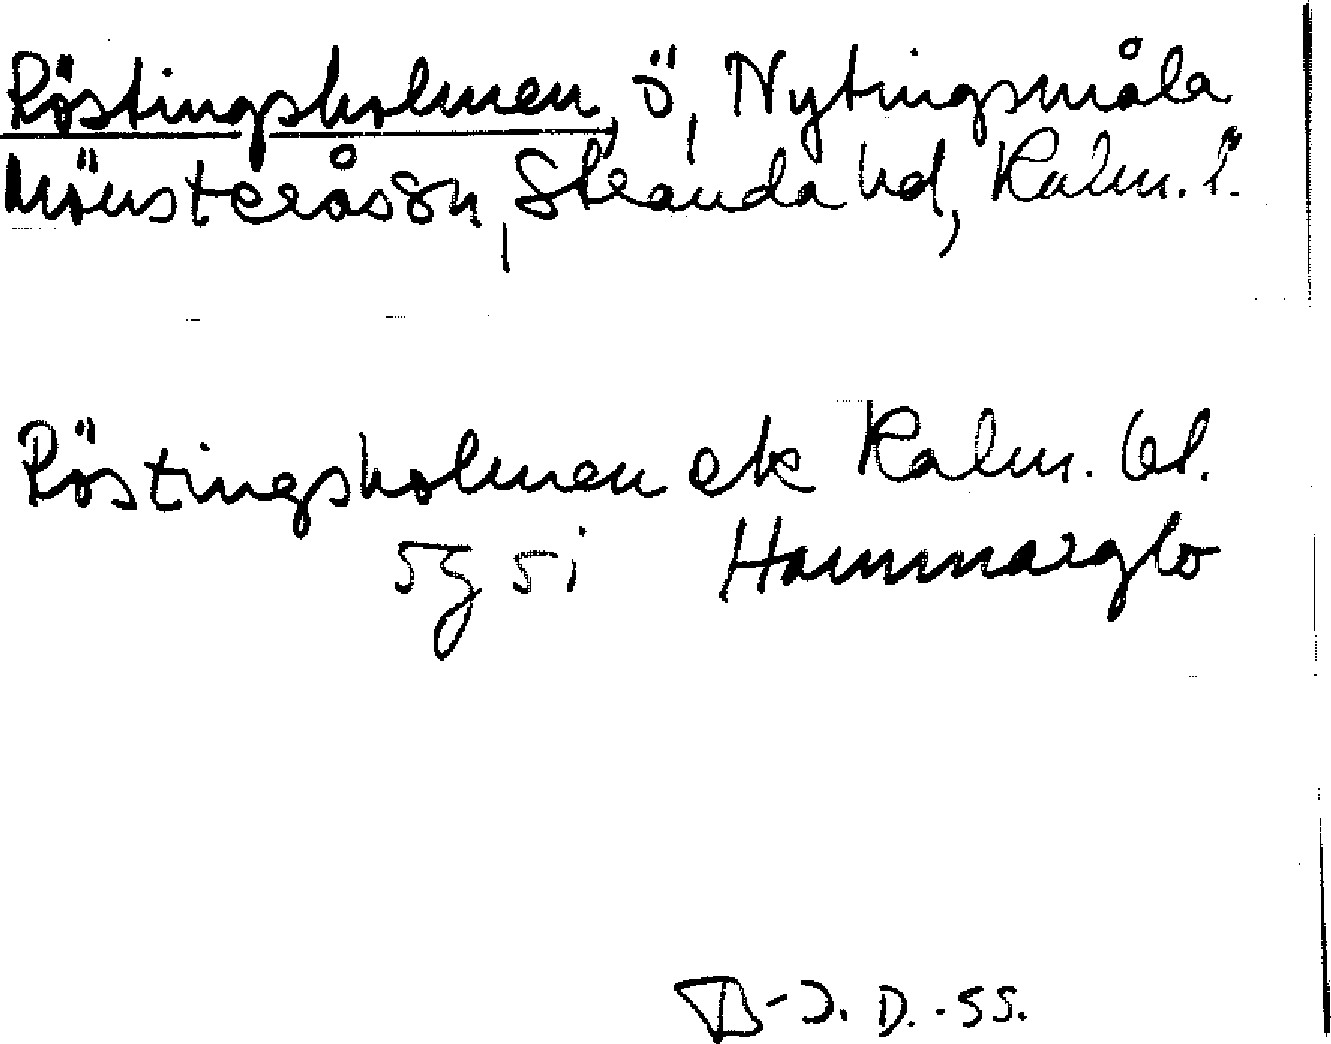 Röstingsholmen, ö, Nytingsmåla
Mönsterås sn, Stranda hd, Kalm. l.
Röstingsholmen ek Kalm. bl.
5g 5i Hammarglo
B-J. D.-55.